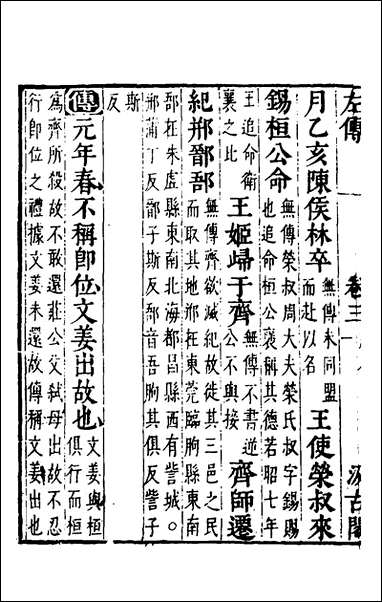 左傳 卷三 汲古閣
月乙亥陳侯林卒 無傳未同盟而赴以名 王使榮叔來
錫桓公命 無傳榮叔周大夫榮氏叔字錫賜也追命桓公褒稱其德若昭七年
王追命衛襄之比 王姬歸于齊 無傳不書逆公不與接 齊師遷
紀郱鄑郚 無傳齊欲滅紀故徙其三邑之民而取其地郱在東莞臨朐縣東南
郚在朱虛縣東南北海都昌縣西有訾城。郱蒲丁反鄑子斯反郚音吾朐其俱反訾子
斯反
傳元年春不稱即位文姜出故也 文姜與桓俱行而桓
為齊所殺故不敢還莊公父弒母出故不忍行即位之禮據文姜未還故傳稱文姜出也